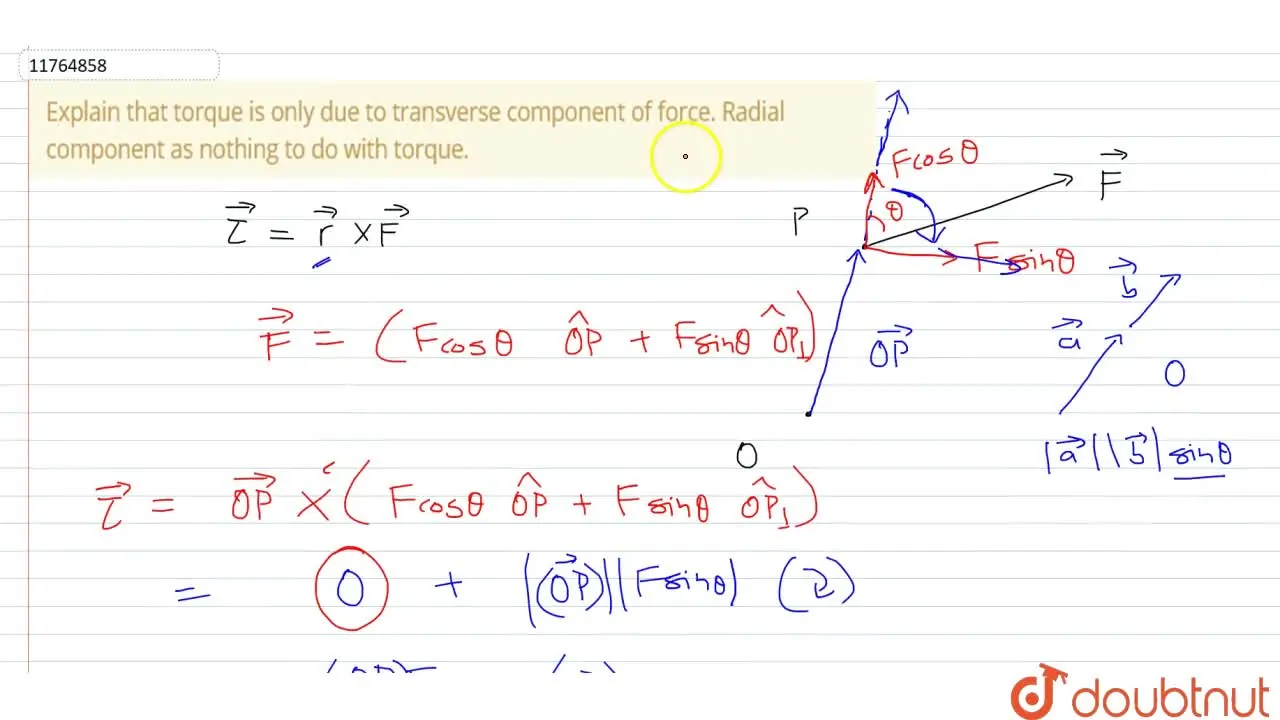 11764858
Explain that torque is only due to transverse component of force. Radial
component as nothing to do with torque.
τ⃗ = r⃗ × F⃗
F⃗ = (Fcosθ ÔP + Fsinθ ÔP⊥)
P
Fcosθ
θ
F⃗
Fsinθ
OP⃗
O
a⃗
b⃗
O
|a⃗||b⃗| sinθ
τ⃗ = OP⃗ × (Fcosθ ÔP + Fsinθ ÔP⊥)
= 0 + |(OP⃗)||Fsinθ|
doubtnut